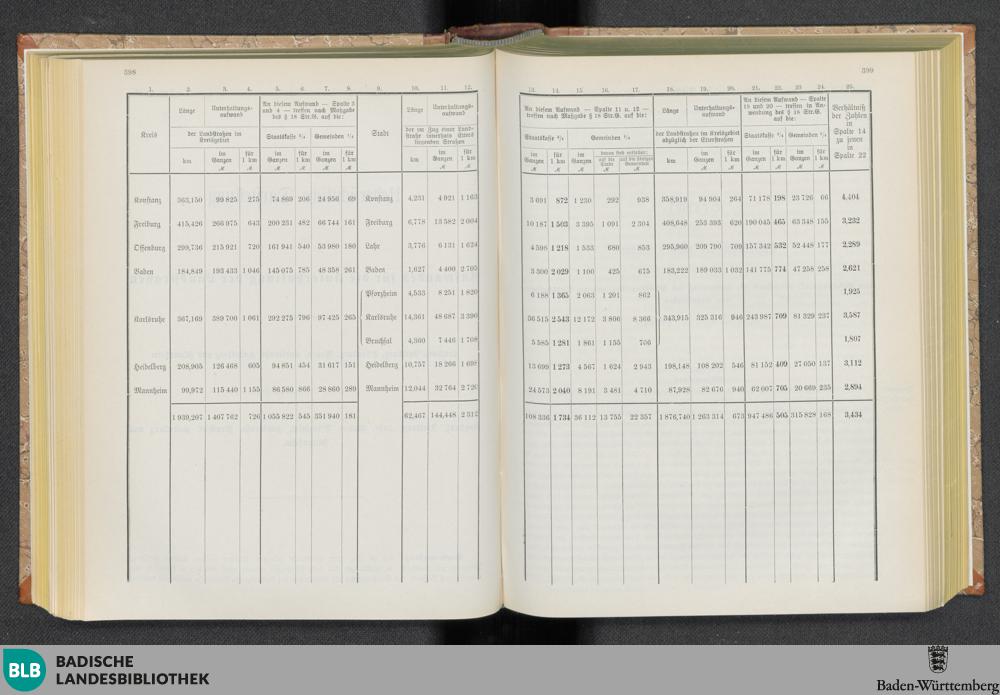 398
1. 2. 3. 4. 5. 6. 7. 8. 9. 10. 11. 12.
Kreis
Länge
Unterhaltungs-
aufwand
An diesem Aufwand — Spalte 3
und 4 — treffen nach Maßgabe
des § 18 Str.G. auf die:
Stadt
Länge
Unterhaltungs-
aufwand
der Landstraßen im
Kreisgebiet
Staatskasse ¾
Gemeinden ¼
der im Zug einer Land-
straße innerhalb Etters
liegenden Straßen
km
im
Ganzen
ℳ
für
1 km
ℳ
im
Ganzen
ℳ
für
1 km
ℳ
im
Ganzen
ℳ
für
1 km
ℳ
km
im
Ganzen
ℳ
für
1 km
ℳ
Konstanz 363,150 99 825 275 74 869 206 24 956 69 Konstanz 4,231 4 921 1 163
Freiburg 415,426 266 975 643 200 231 482 66 744 161 Freiburg 6,778 13 582 2 004
Offenburg 299,736 215 921 720 161 941 540 53 980 180 Lahr 3,776 6 131 1 624
Baden 184,849 193 433 1 046 145 075 785 48 358 261 Baden 1,627 4 400 2 705
Pforzheim 4,533 8 251 1 820
Karlsruhe 367,169 389 700 1 061 292 275 796 97 425 265 Karlsruhe 14,361 48 687 3 390
Bruchsal 4,360 7 446 1 708
Heidelberg 208,905 126 468 605 94 851 454 31 617 151 Heidelberg 10,757 18 266 1 698
Mannheim 99,972 115 440 1 155 86 580 866 28 860 289 Mannheim 12,044 32 764 2 720
1 939,207 1 407 762 726 1 055 822 545 351 940 181 62,467 144,448 2 312
399
13. 14. 15. 16. 17. 18. 19. 20. 21. 22. 23. 24. 25.
An diesem Aufwand — Spalte 11 u. 12 —
treffen nach Maßgabe § 18 Str.G. auf die:
Länge
Unterhaltungs-
aufwand
An diesem Aufwand — Spalte
19 und 20 — treffen in An-
wendung des § 18 Str.G.
auf die:
Verhältniß
der Zahlen
in
Spalte 14
zu jenen
in
Spalte 22
Staatskasse ¾
Gemeinden ¼
der Landstraßen im Kreisgebiet
abzüglich der Etterstraßen
Staatskasse ¾
Gemeinden ¼
im
Ganzen
ℳ
für
1 km
ℳ
im
Ganzen
ℳ
davon
auf die
ℳ
auf die übrigen
Gemeinden
ℳ
km
im
Ganzen
ℳ
für
1 km
ℳ
im
Ganzen
ℳ
für
1 km
ℳ
im
Ganzen
ℳ
für
1 km
ℳ
3 691 872 1 230 292 938 358,919 94 904 264 71 178 198 23 726 66 4,404
10 187 1 503 3 395 1 091 2 304 408,648 253 393 620 190 045 465 63 348 155 3,232
4 598 1 218 1 533 680 853 295,960 209 790 709 157 342 532 52 448 177 2,289
3 300 2 029 1 100 425 675 183,222 189 033 1 032 141 775 774 47 258 258 2,621
6 188 1 365 2 063 1 201 862 1,925
36 515 2 543 12 172 3 806 8 366 343,915 325 316 946 243 987 709 81 329 237 3,587
5 585 1 281 1 861 1 155 706 1,807
13 699 1 273 4 567 1 624 2 943 198,148 108 202 546 81 152 409 27 050 137 3,112
24 573 2 040 8 191 3 481 4 710 87,928 82 676 940 62 007 705 20 669 235 2,894
108 336 1 734 36 112 13 755 22 357 1 876,740 1 263 314 673 947 486 505 315 828 168 3,434
BLB
BADISCHE
LANDESBIBLIOTHEK
Baden-Württemberg